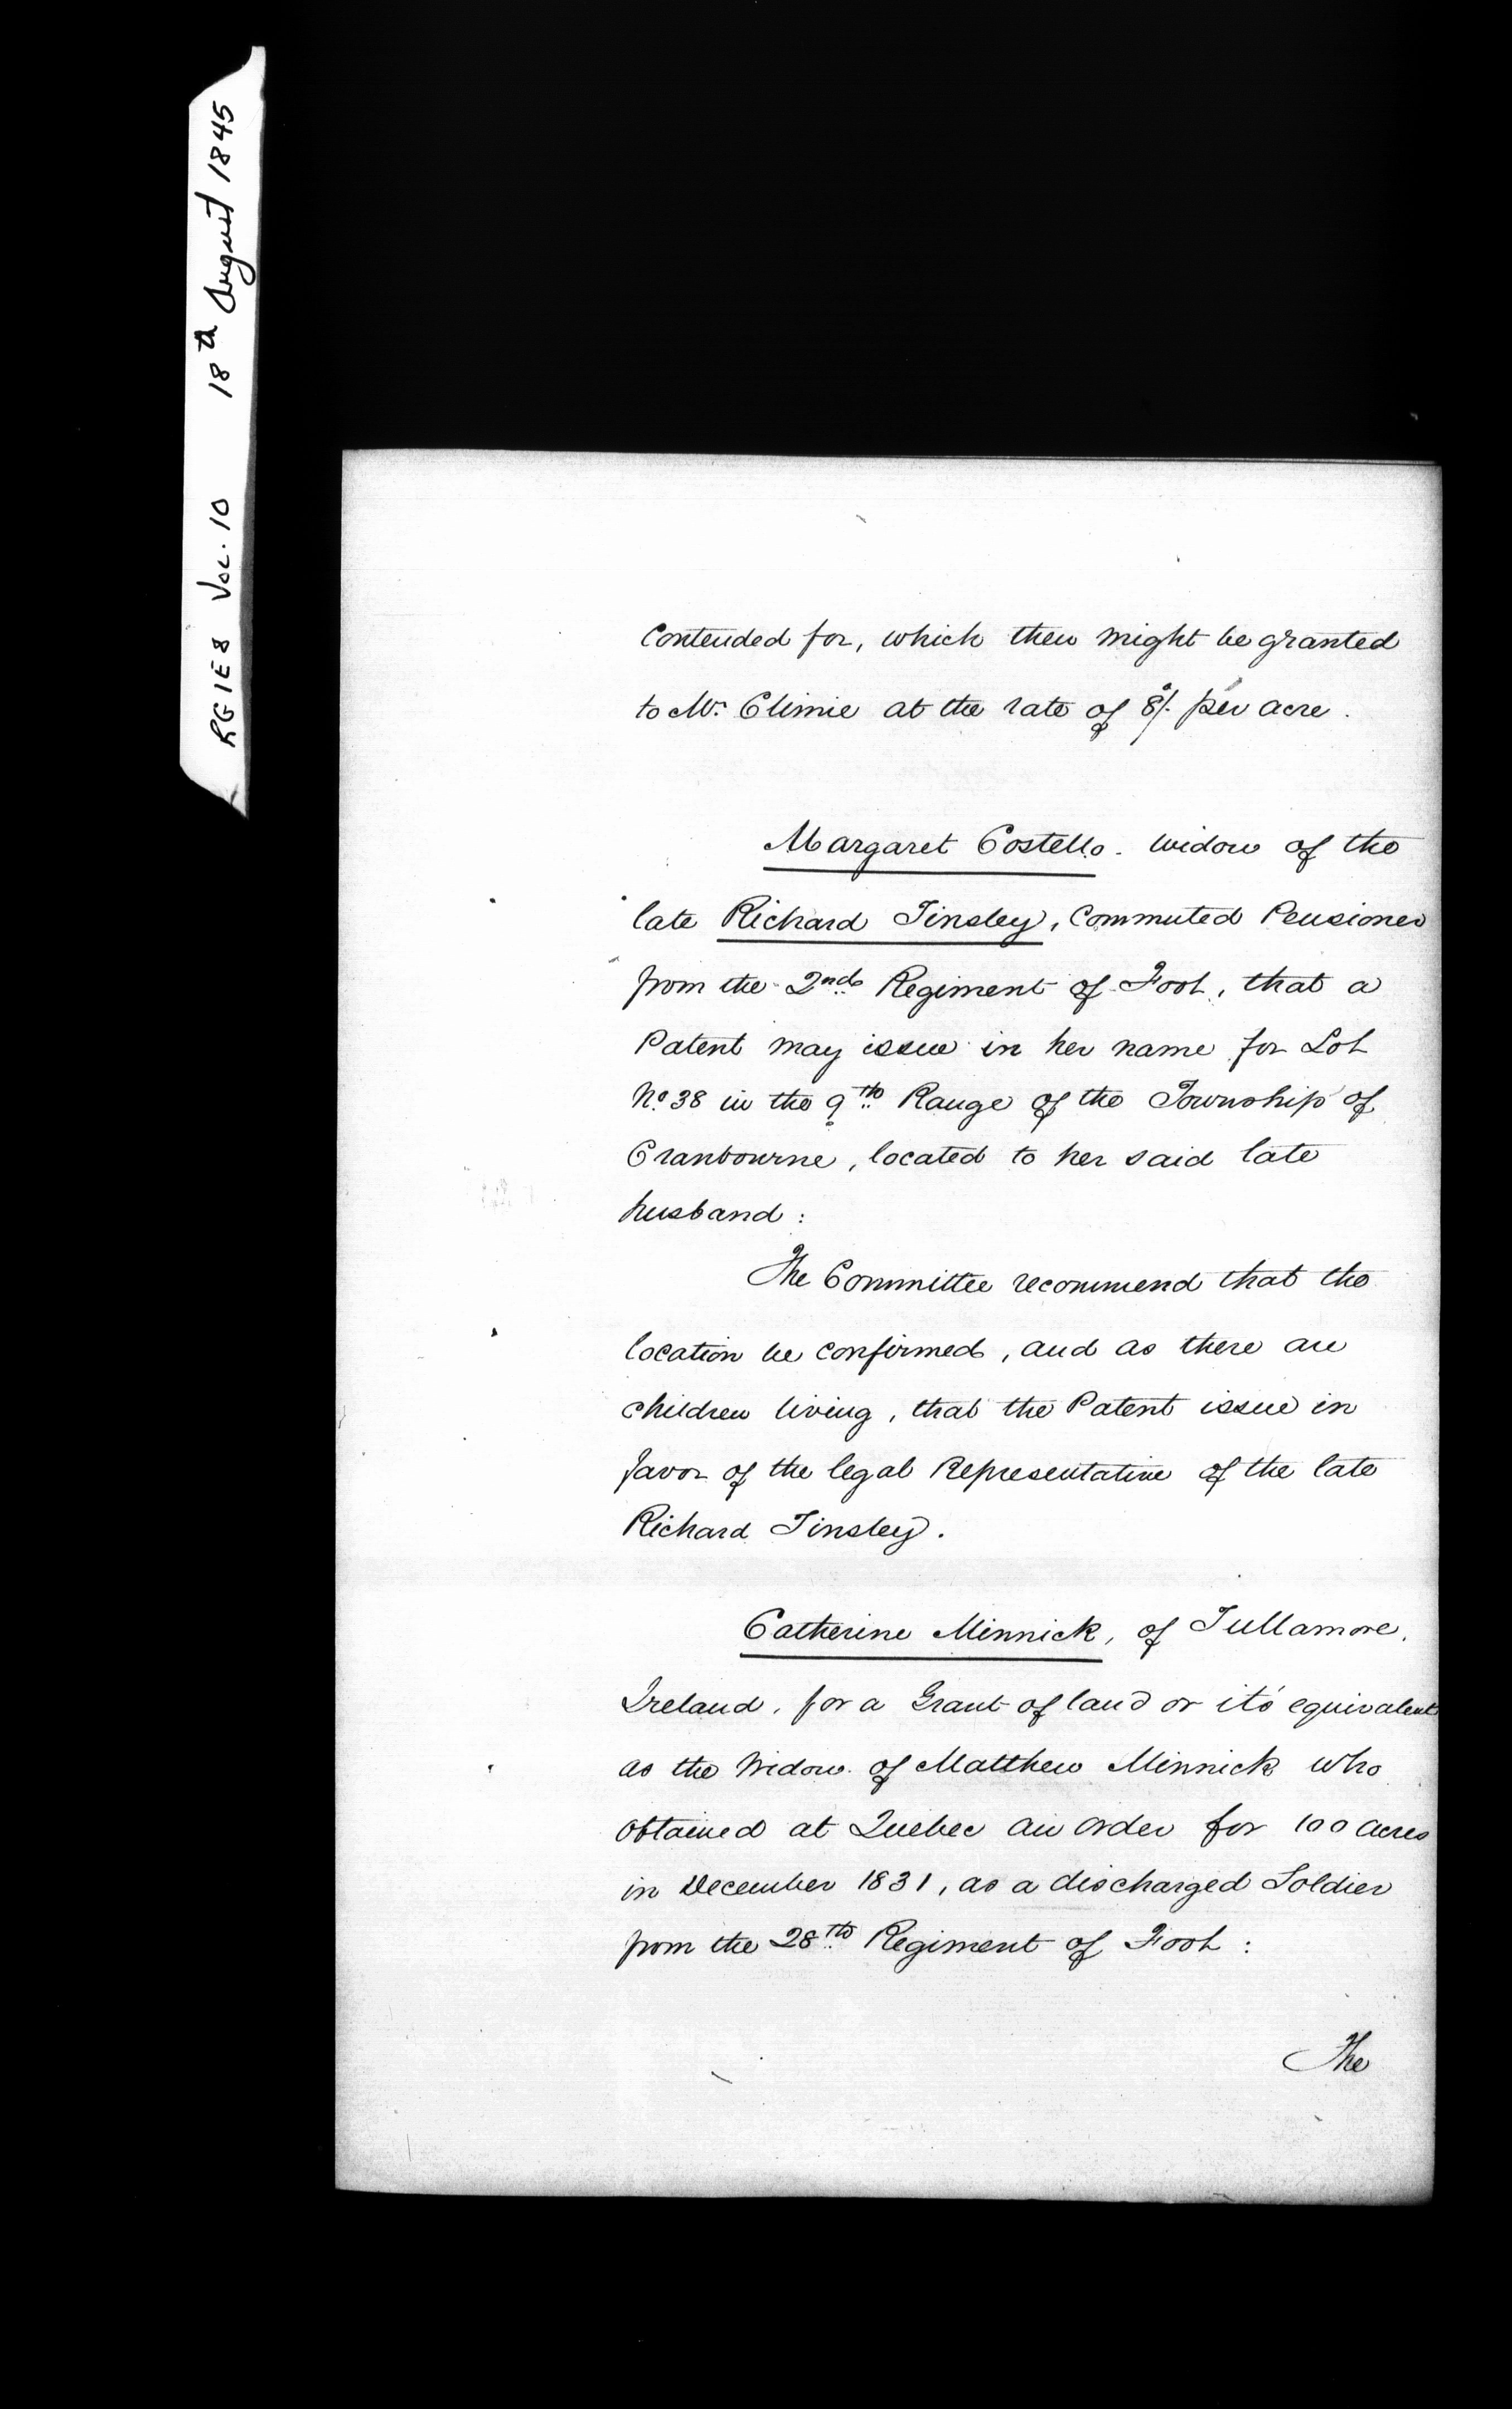 RG1E8 Vol. 10 18th August 1845
Contended for, which then might be granted
to Mr. Climie at the rate of 8/. per acre.
Margaret Costello. Widow of the
late Richard Tinsley, Commuted Pensioner
from the 2nd Regiment of Foot, that a
Patent may issue in her name for Lot
No. 38 in the 9th Range of the Township of
Cranbourne, located to her said late
husband:
The Committee recommend that the
location be confirmed, and as there are
children living, that the Patent issue in
favor of the legal Representative of the late
Richard Tinsley.
Catherine Minnick, of Tullamore,
Ireland, for a Grant of land or it's equivalent
as the Widow of Matthew Minnick who
obtained at Quebec an order for 100 acres
in December 1831, as a discharged Soldier
from the 28th Regiment of Foot:
The